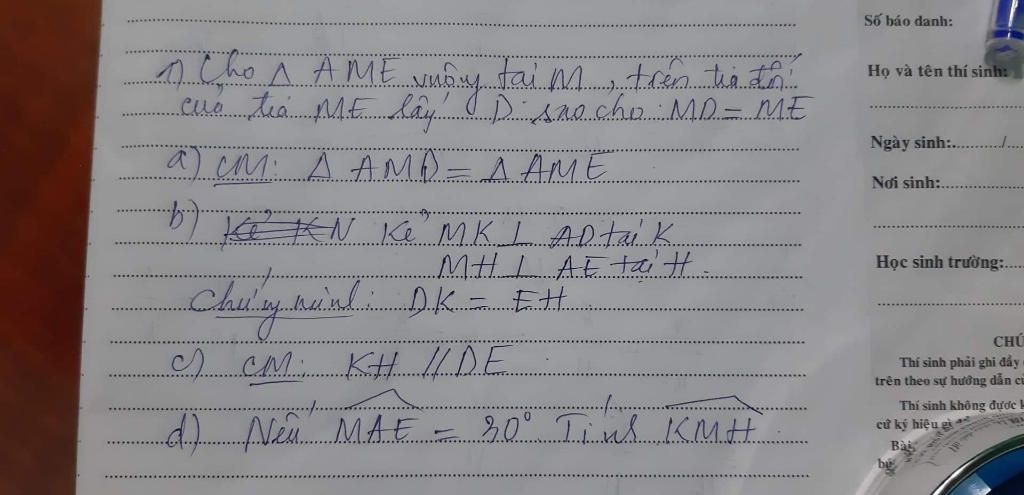 1) Cho Δ AME vuông tại M, trên tia đối
của tia ME lấy D sao cho MD = ME
a) CM: Δ AMD = Δ AME
b) Kẻ KN Kẻ MK ⊥ AD tại K
MH ⊥ AE tại H.
Chứng minh: DK = EH
c) CM: KH // DE
d) Nếu MAE = 30° Tính KMH
Số báo danh:
Họ và tên thí sinh:
Ngày sinh:........./....
Nơi sinh:
Học sinh trường:
CHÚ
Thí sinh phải ghi đầy
trên theo sự hướng dẫn
Thí sinh không được
cứ ký hiệu gì
Bài